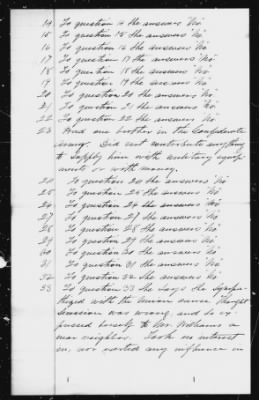 14 To question 14 she answers "No"
15 To question 15 she answers "No"
16 To question 16 she answers "No"
17 To question 17 she answers "No"
18 To question 18 she answers "No"
19 To question 19 she answers "No"
20 To question 20 she answers "No"
21 To question 21 she answers "No"
22 To question 22 she answers "No"
23 Had one brother in the Confederate
army. Did not contribute anything
to supply him with military equip
ments or with money.
24 To question 24 she answers "No"
25 To question 25 she answers "No"
26 To question 26 she answers "No"
27 To question 27 she answers "No"
28 To question 28 she answers "No"
29 To question 29 she answers "No"
30 To question 30 she answers "No"
31 To question 31 she answers "No"
32 To question 32 she answers "No"
33 To question 33 she says she sympa-
thized with the Union cause. Thought
Secession was wrong, and so ex-
pressed herself to Mr. Williams a
near neighbor. Took no interest
in, nor exerted any influence on